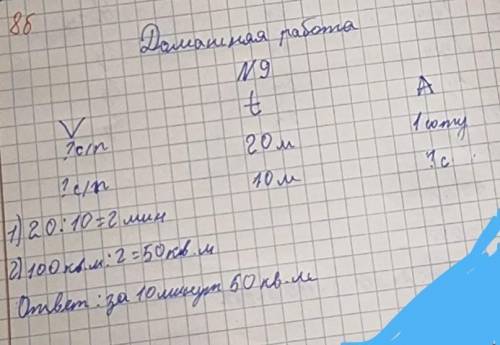 8б
Домашняя работа
N9
V t A
?с/п 20м 1 соту
?с/п 10м ?с
1) 20:10=2 мин
2) 100кв.м:2=50кв.м
Ответ: за 10минут 50кв.м